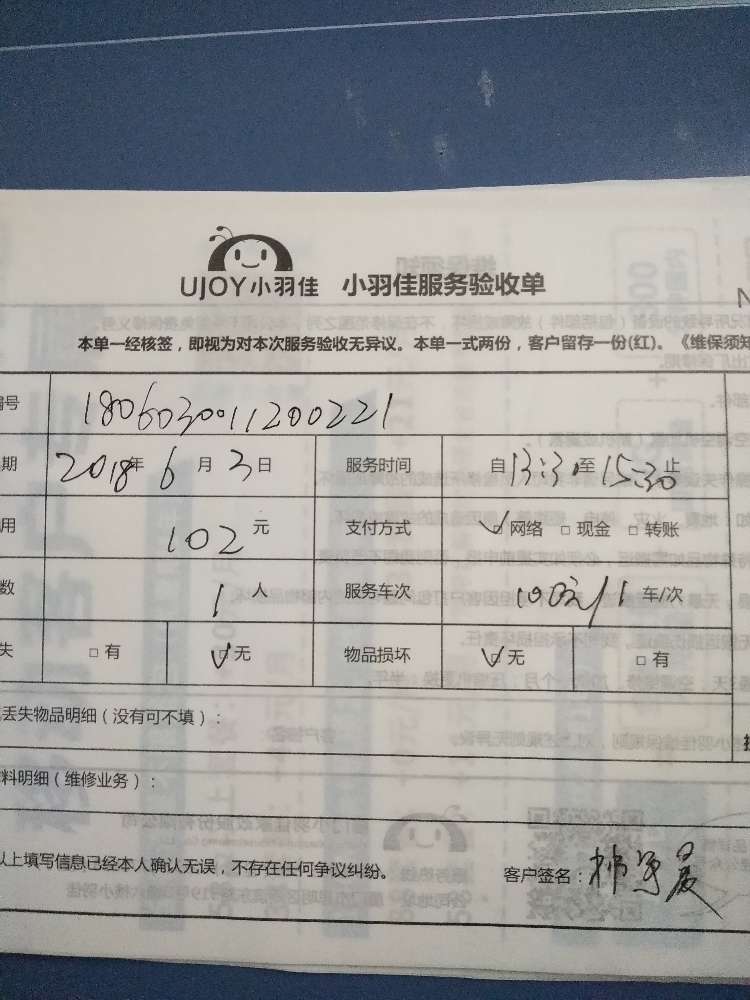 UJOY小羽佳 小羽佳服务验收单
本单一经核签，即视为对本次服务验收无异议。本单一式两份，客户留存一份(红)。《维保须知
编号 180603001120022​1
期 2018年6月3日 服务时间 自13:30至15:30止
用 102元 支付方式 ☑网络 □现金 □转账
数 1人 服务车次 1车/次
失 □有 ☑无 物品损坏 ☑无 □有
丢失物品明细（没有可不填）：
料明细（维修业务）：
以上填写信息已经本人确认无误，不存在任何争议纠纷。 客户签名：